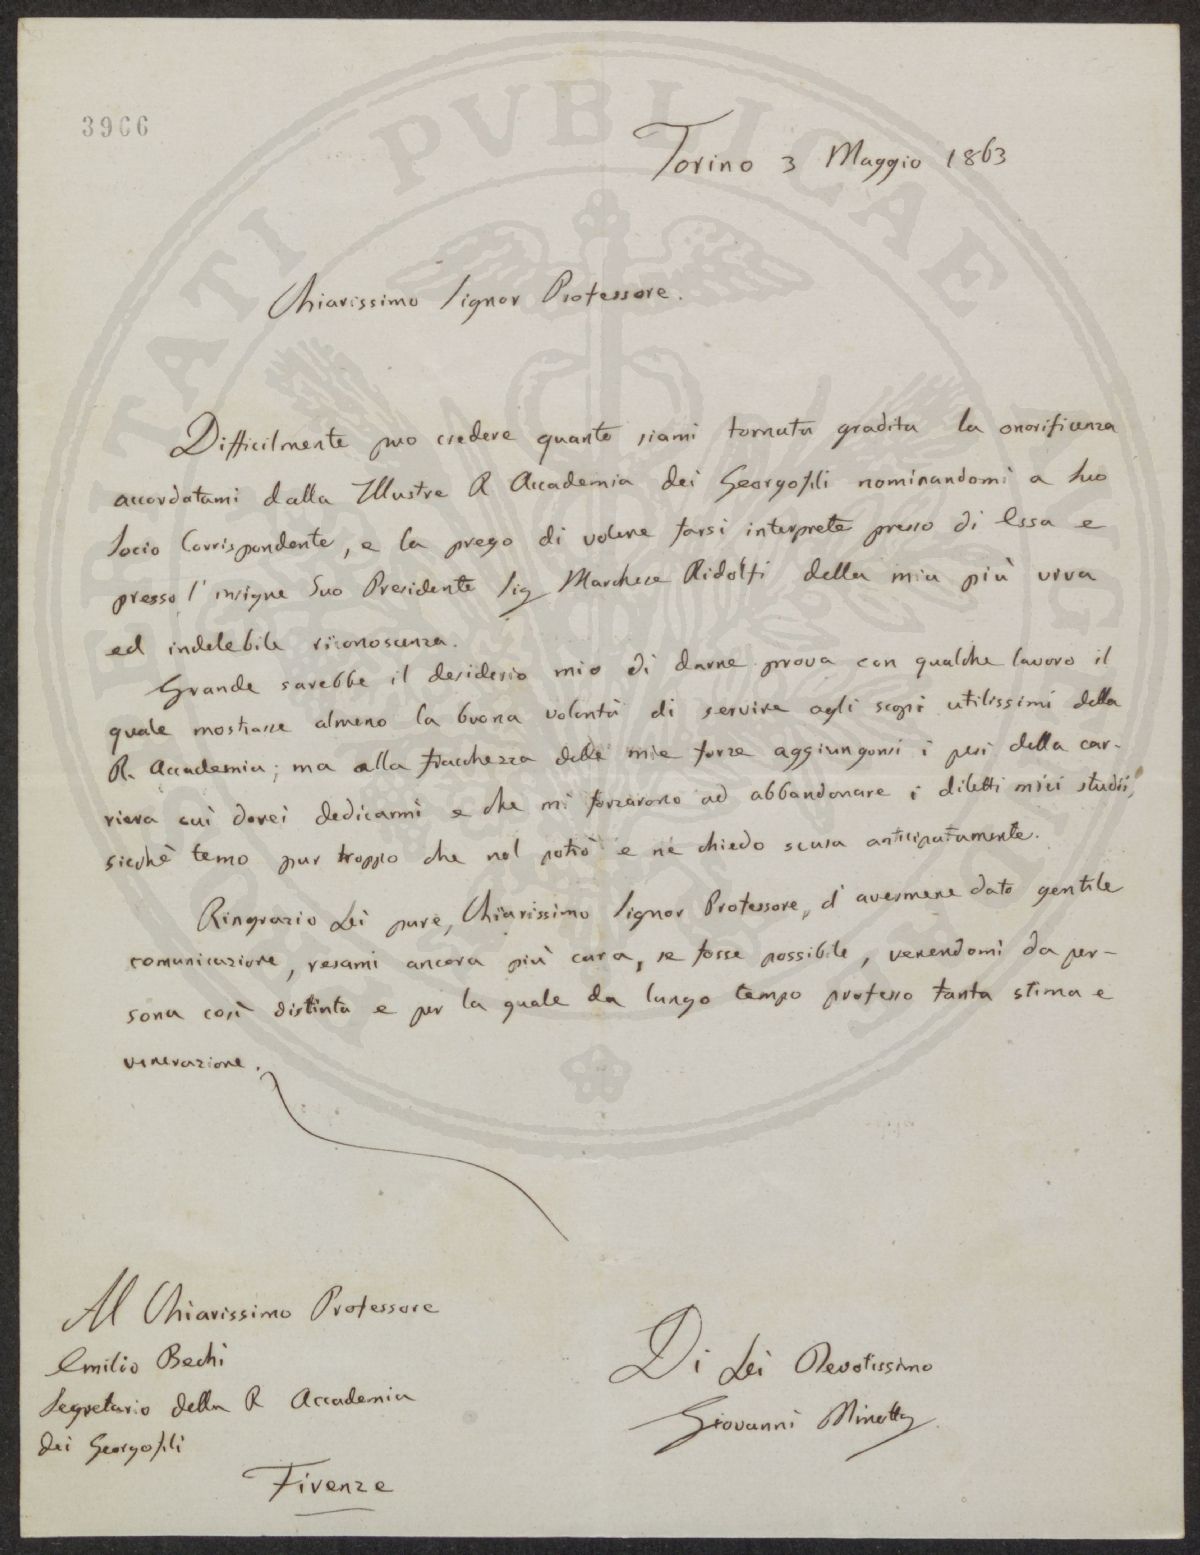 3966
Torino 3 Maggio 1863
Chiarissimo Signor Professore.
Difficilmente può credere quanto siami tornata gradita la onorificenza
accordatami dalla Illustre R Accademia dei Georgofili nominandomi a suo
Socio Corrispondente, e la prego di volere farsi interprete presso di Essa e
presso l'insigne Suo Presidente Sig Marchese Ridolfi della mia più viva
ed indelebile riconoscenza.
Grande sarebbe il desiderio mio di darne prova con qualche lavoro il
quale mostrasse almeno la buona volontà di servire agli scopi utilissimi della
R. Accademia; ma alla fiacchezza delle mie forze aggiungonsi i pesi della car-
riera cui dovei dedicarmi e che mi forzarono ad abbandonare i diletti miei studii,
sicchè temo pur troppo che nol potrò e ne chiedo scusa anticipatamente.
Ringrazio Lei pure, Chiarissimo Signor Professore, d'avermene dato gentile
comunicazione, resami ancora più cara, se fosse possibile, venendomi da per-
sona così distinta e per la quale da lungo tempo professo tanta stima e
venerazione.
Al Chiarissimo Professore
Emilio Bechi
Segretario della R Accademia
dei Georgofili
Firenze
Di Lei Devotissimo
Giovanni Minotto